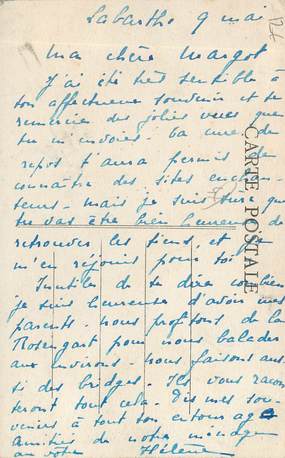 Labarthe 9 mai
Ma chère Margot
J'ai été très sensible à
ton affectueux souvenir et te
remercie des jolies vues que
tu m'envoies. Ta cure de
repos t'aura permis de
connaître des sites enchan-
teurs - mais je suis sûre que
tu vas être bien heureuse de
retrouver les tiens, et je
m'en réjouis pour toi
Inutile de te dire combien
je suis heureuse d'avoir mes
parents. nous profitons de la
Rosengart pour nous balader
aux environs. nous faisons aus
si des bridges. Ils vous racon
teront tout cela. Dis mes sou-
venirs à tout ton entourage
Amitiés de notre ménage
au vôtre Hélène
CARTE POSTALE